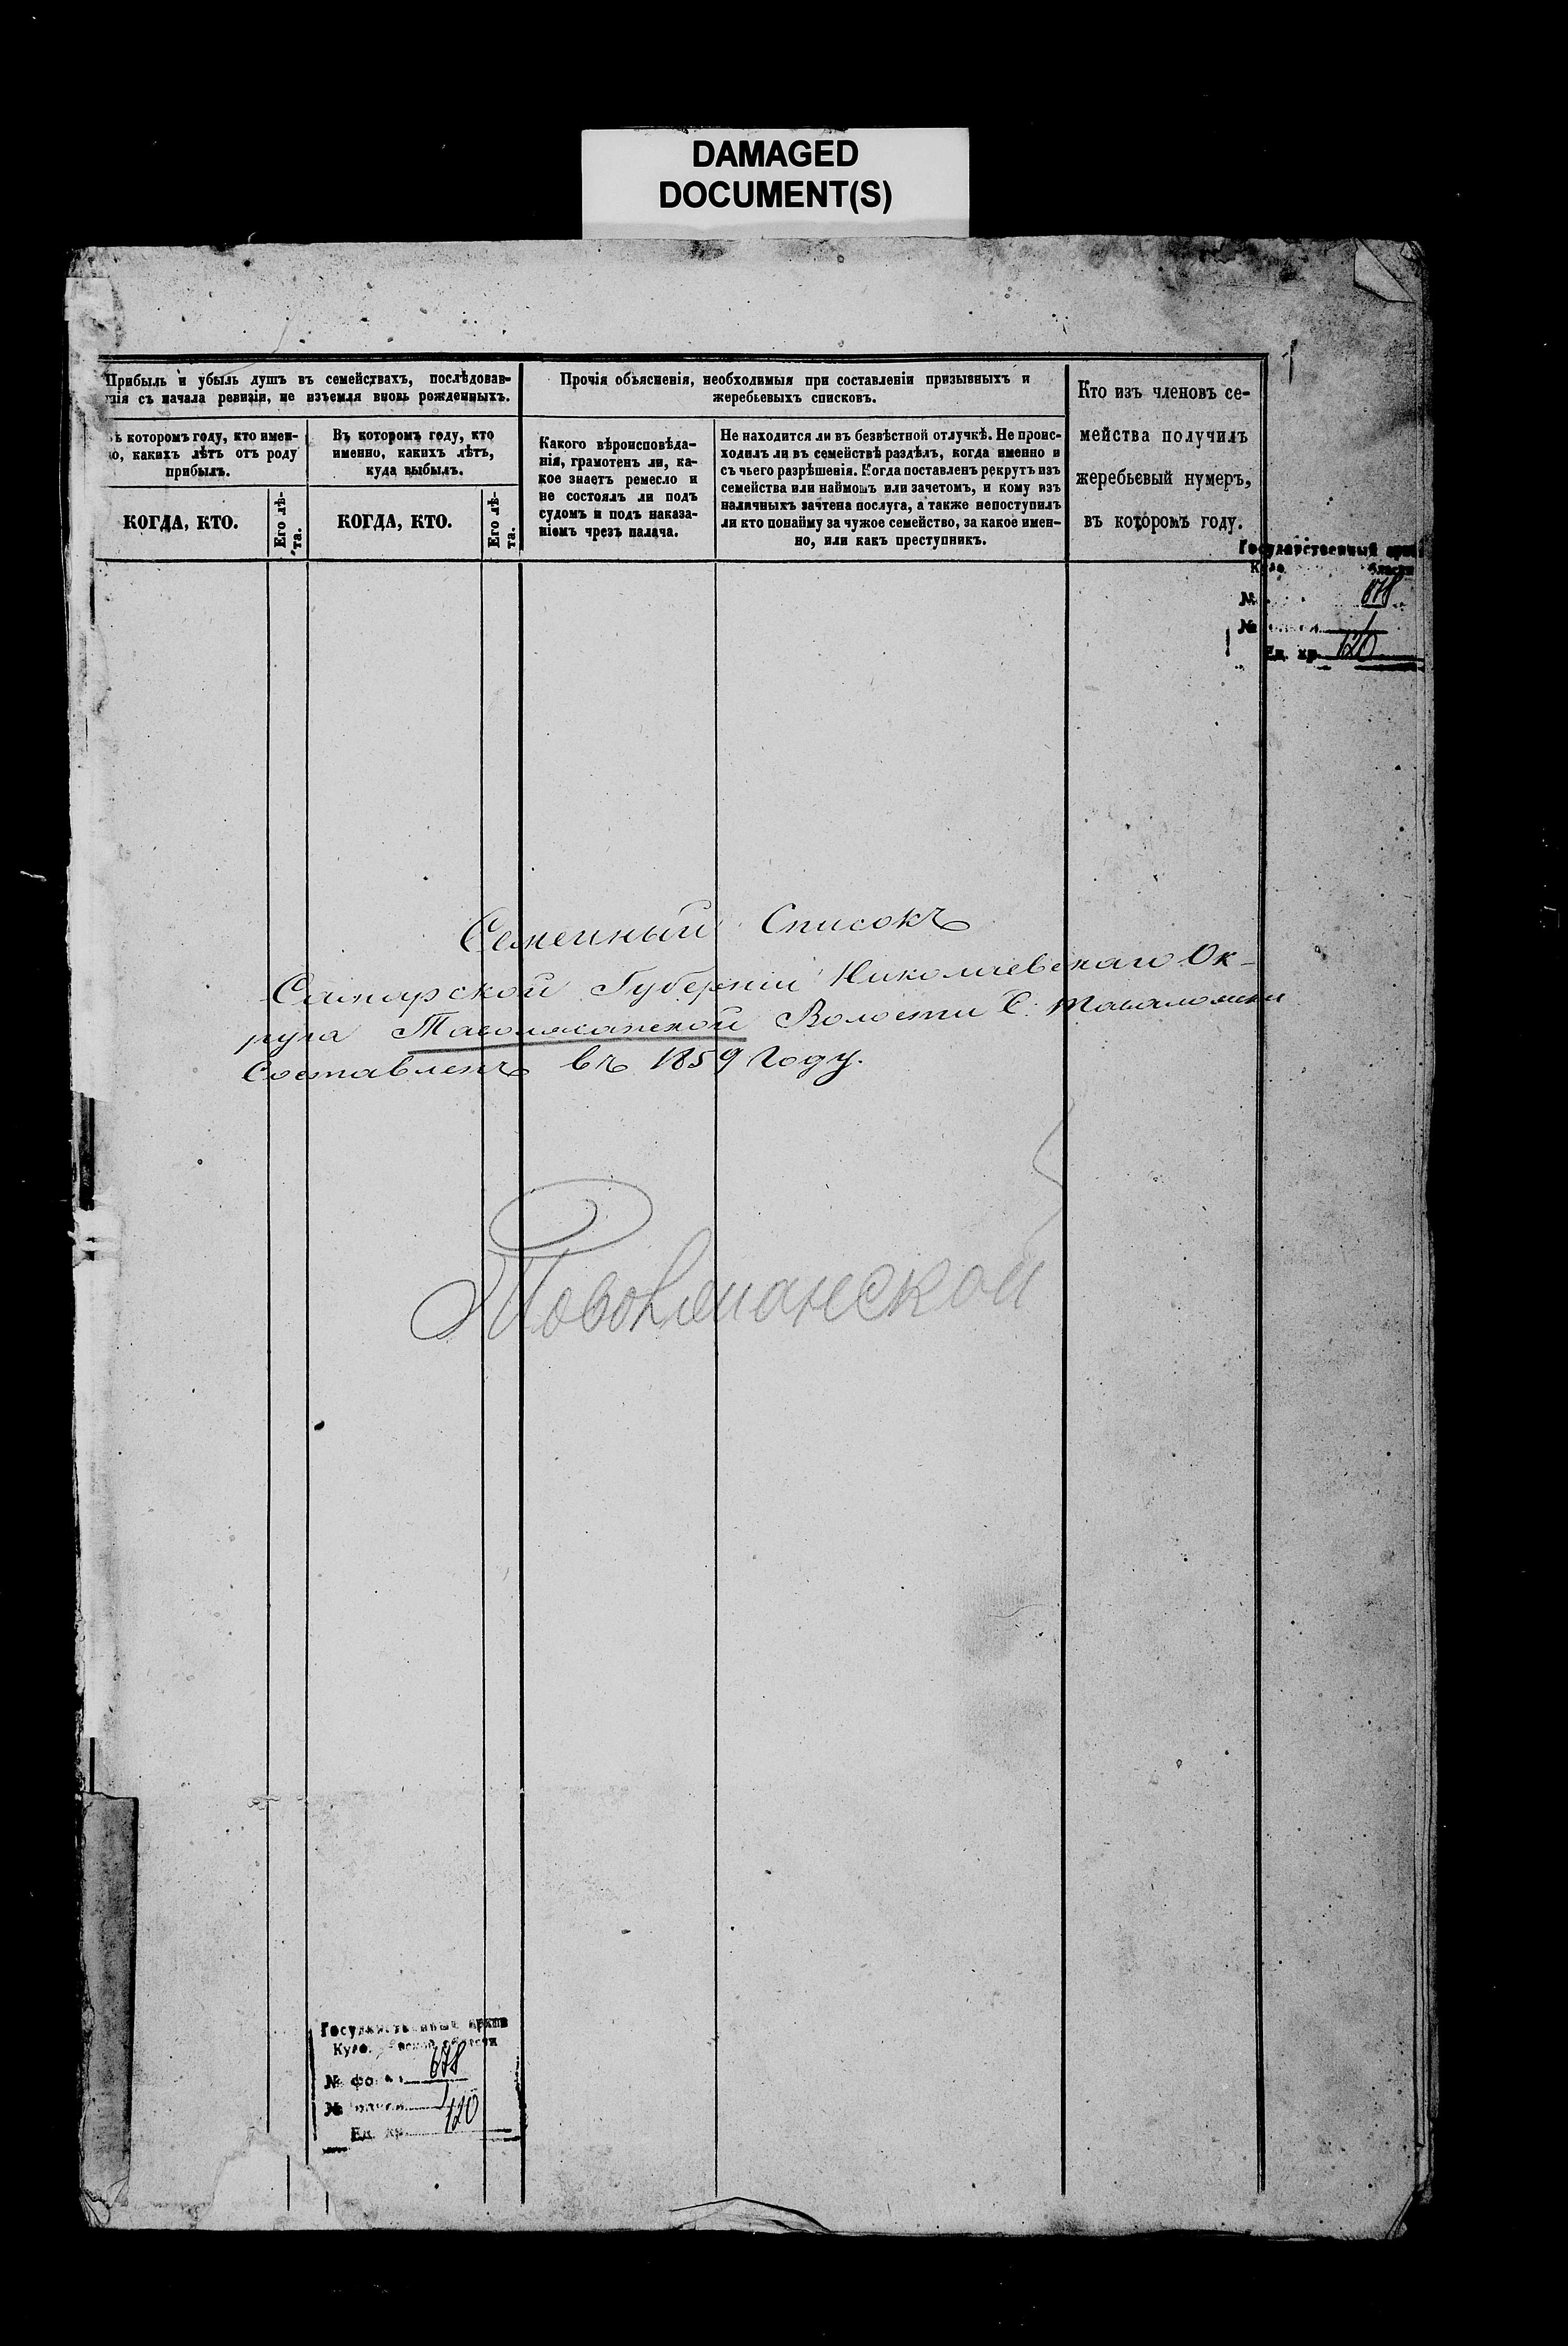 DAMAGED
DOCUMENT(S)
1
Прибыль и убыль душъ въ семействахъ, послѣдовав-
шія съ начала ревизіи, не изъемля вновь рожденныхъ.
Прочія объясненія, необходимыя при составленіи призывныхъ и
жеребьевыхъ списковъ.
Кто изъ членовъ се-
мейства получилъ
жеребьевый нумеръ,
въ которомъ году.
ъ которомъ году, кто имен-
но, какихъ лѣтъ отъ роду
прибылъ.
Въ которомъ году, кто
именно, какихъ лѣтъ,
куда выбылъ.
Какого вѣроисповѣда-
нія, грамотенъ ли, ка-
кое знаетъ ремесло и
не состоялъ ли подъ
судомъ и подъ наказа-
ніемъ чрезъ палача.
Не находится ли въ безвѣстной отлучкѣ. Не проис-
ходилъ ли въ семействѣ раздѣлъ, когда именно и
съ чьего разрѣшенія. Когда поставленъ рекрутъ изъ
семейства или наймомъ или зачетомъ, и кому изъ
наличныхъ зачтена послуга, а также непоступилъ
ли кто понайму за чужое семейство, за какое имен-
но, или какъ преступникъ.
КОГДА, КТО.
Его лѣ-
та.
КОГДА, КТО.
Его лѣ-
та.
Государственный архив
области
№ 678
№ описи 1
Ед. хр. 120
Семейный Списокъ
Самарской Губерніи Николаевскаго Ок-
руга Волости С.
Составленъ въ 1859 году.
Государственный архив
Куйбышевской области
№ фонда 678
№ описи 1
Ед. хр. 120